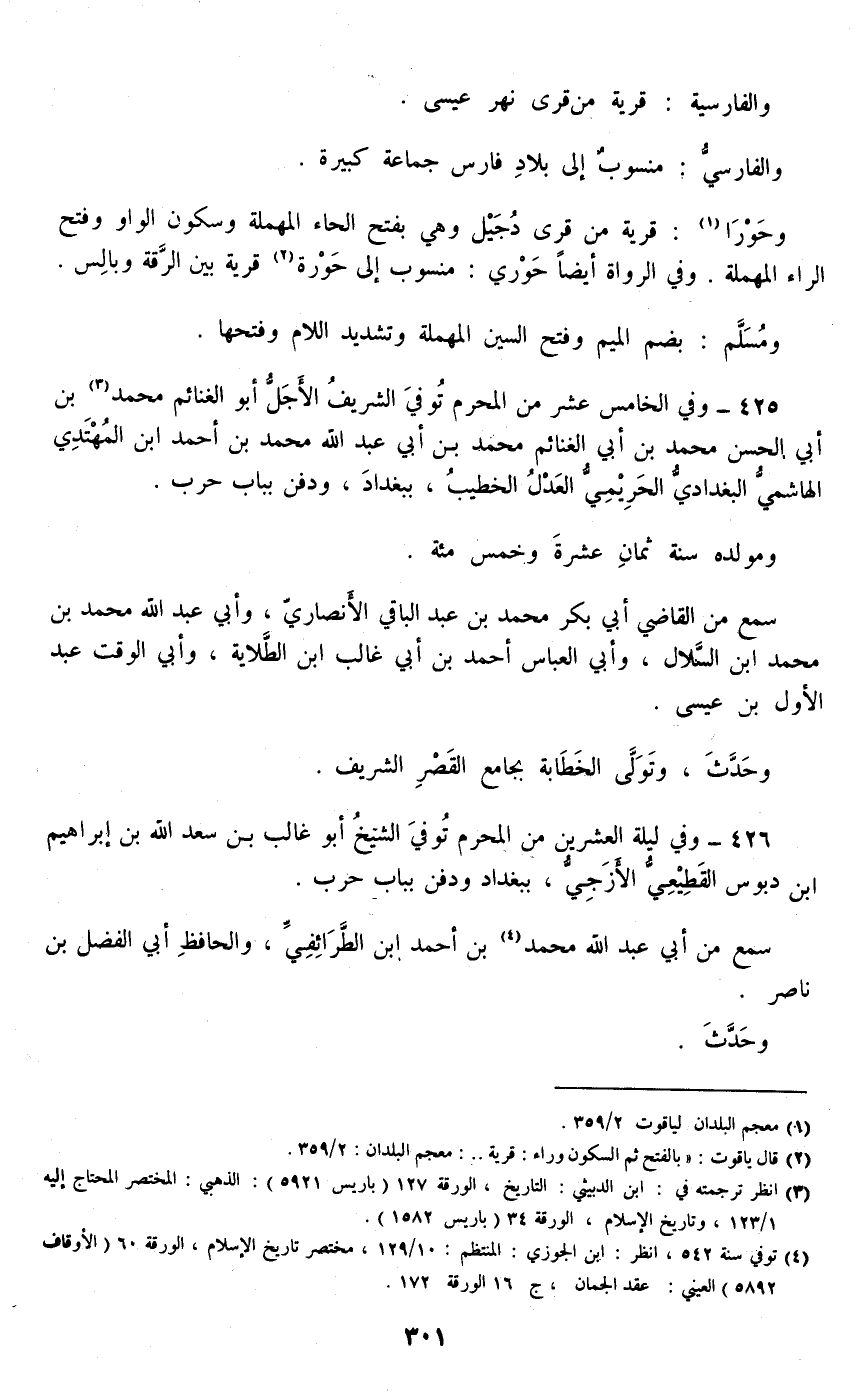 والفارسية : قرية من قرى نهر عيسى .
والفارسيُّ : منسوبٌ إلى بلادِ فارس جماعة كبيرة .
وحَوْرَا(١) : قرية من قرى دُجَيْل وهي بفتح الحاء المهملة وسكون الواو وفتح
الراء المهملة . وفي الرواة أيضاً حَوْري : منسوب إلى حَوْرة(٢) قرية بين الرَّقة وبالِس .
ومُسَلَّم : بضم الميم وفتح السين المهملة وتشديد اللام وفتحها .
٤٢٥ ــ وفي الخامس عشر من المحرم تُوفيَ الشريفُ الأَجَلُّ أبو الغنائم محمد(٣) بن
أبي الحسن محمد بن أبي الغنائم محمد بن أبي عبد الله محمد بن أحمد ابن المُهْتَدِي
الهاشميُّ البغداديُّ الحَرِيْمِيُّ العَدْلُ الخطيبُ ، ببغدادَ ، ودفن بباب حرب .
ومولده سنة ثمانِ عشرةَ وخمس مئة .
سمع من القاضي أبي بكر محمد بن عبد الباقي الأَنصاريّ ، وأبي عبد الله محمد بن
محمد ابن السَّلال ، وأبي العباس أحمد بن أبي غالب ابن الطَّلاية ، وأبي الوقت عبد
الأول بن عيسى .
وحَدَّثَ ، وتَوَلَّى الخَطَابة بجامع القَصْرِ الشريف .
٤٢٦ ــ وفي ليلة العشرين من المحرم تُوفيَ الشيخُ أبو غالب بن سعد الله بن إبراهيم
ابن دبوس القَطِيْعِيُّ الأَزَجِيُّ ، ببغداد ودفن بباب حرب .
سمع من أبي عبد الله محمد(٤) بن أحمد ابن الطَّرَائِفِيِّ ، والحافظِ أبي الفضل بن
ناصر .
وحَدَّثَ .
(١) معجم البلدان لياقوت ٣٥٩/٢ .
(٢) قال ياقوت : « بالفتح ثم السكون وراء : قرية .. : معجم البلدان : ٣٥٩/٢ .
(٣) انظر ترجمته في : ابن الدبيثي : التاريخ ، الورقة ١٢٧ ( باريس ٥٩٢١ ) : الذهبي : المختصر المحتاج إليه
١٢٣/١ ، وتاريخ الإسلام ، الورقة ٣٤ ( باريس ١٥٨٢ ) .
(٤) توفي سنة ٥٤٢ ، انظر : ابن الجوزي : المنتظم : ١٢٩/١٠ ، مختصر تاريخ الإسلام ، الورقة ٦٠ ( الأوقاف
٥٨٩٢ ) العيني : عقد الجمان ، ج ١٦ الورقة ١٧٢ .
٣٠١